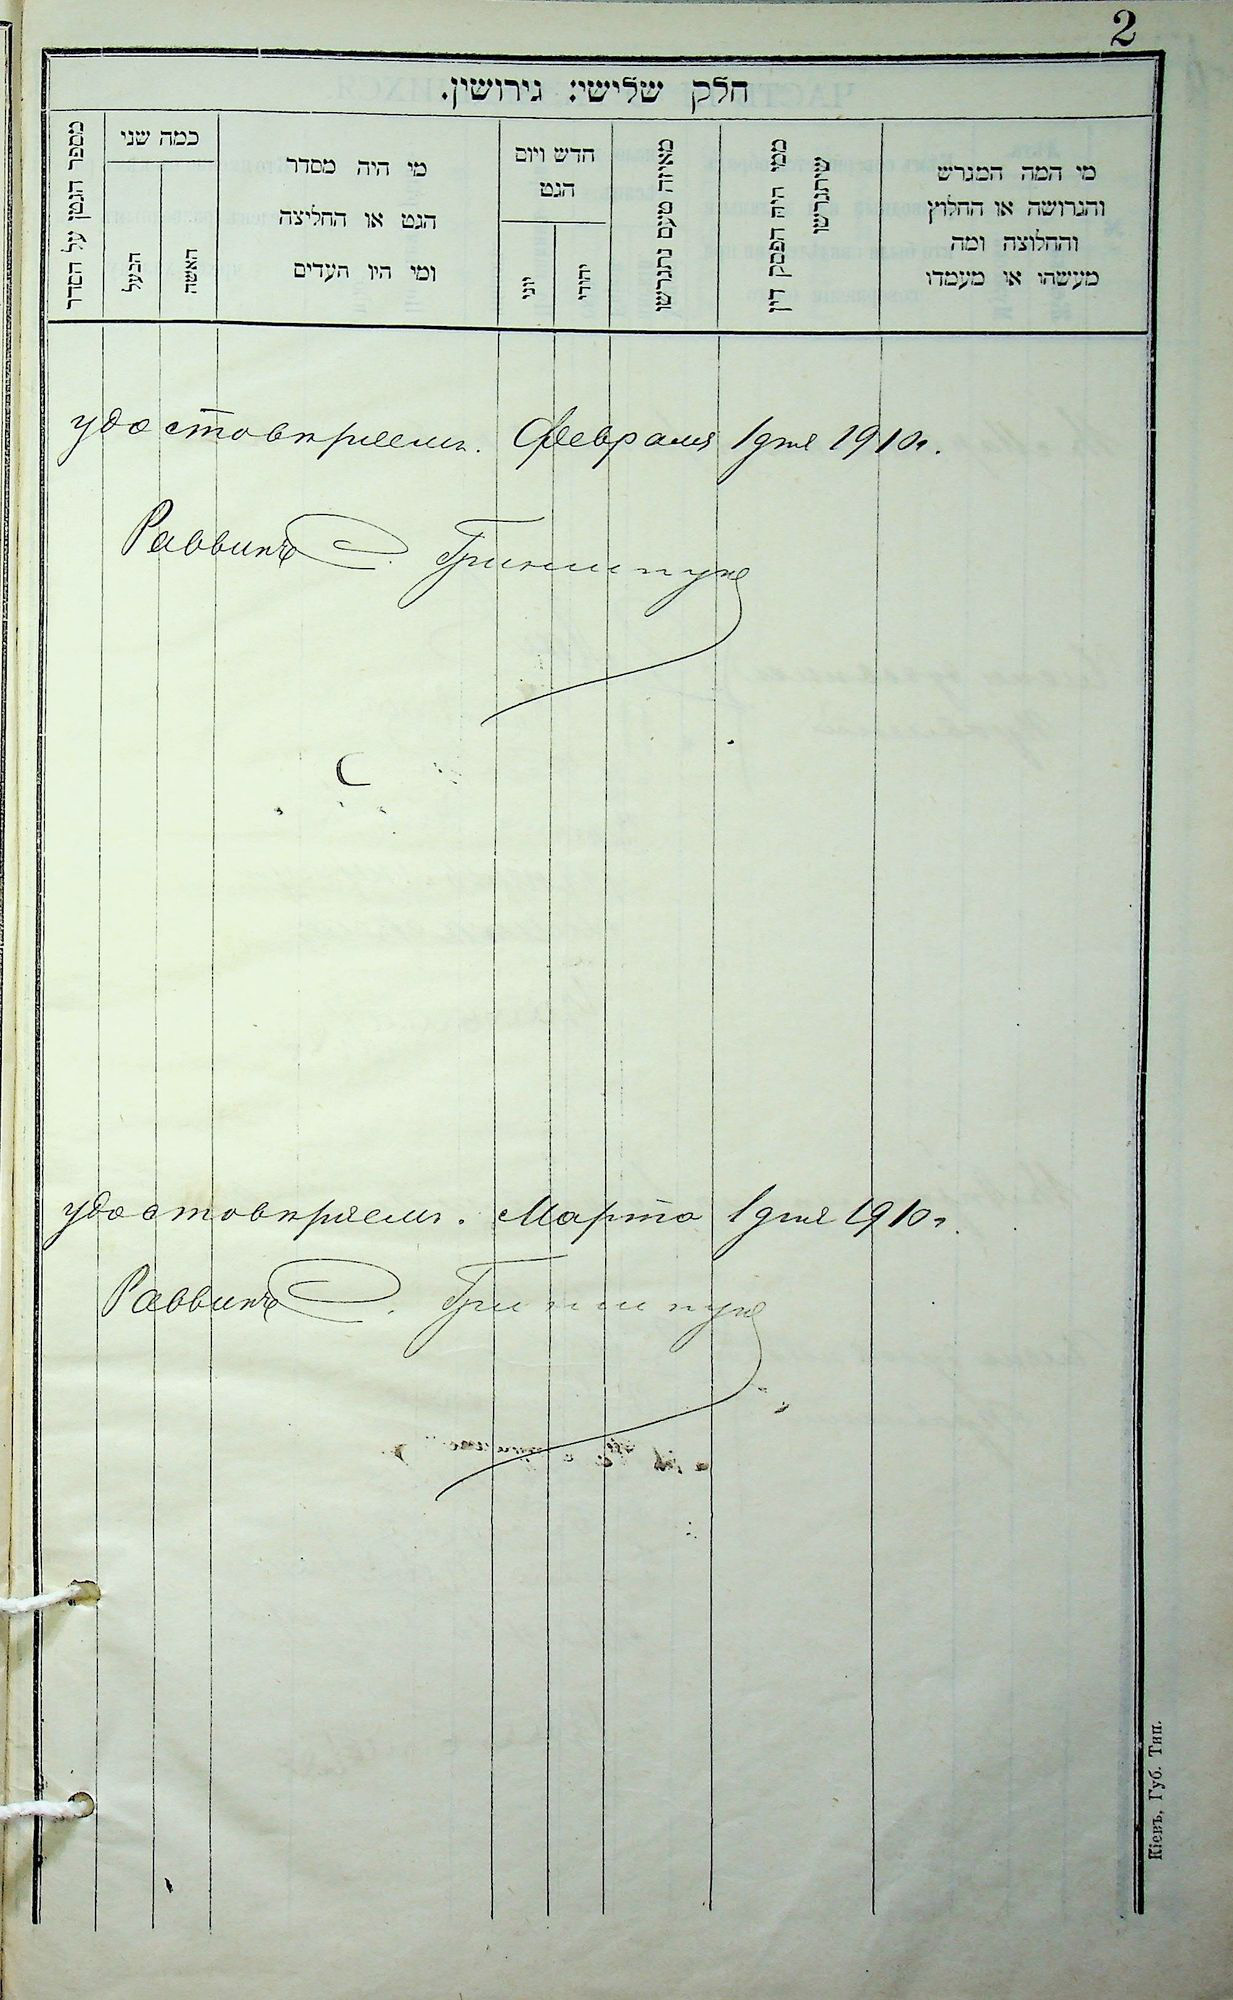 2
חלק שלישי: גירושין.
מי המה המגרש
והגרושה או החלוץ
והחלוצה ומה
מעשהו או מעמדו
ממי היה הפסק דין
שיתגרשו
מאיזה טעם נתגרשו
חדש ויום
הגט
יהודי
יוני
מי היה מסדר
הגט או החליצה
ומי היו העדים
כמה שני
האשה
הבעל
מספר הגטן על הסדר
удостовѣряемъ. Февраля 1 дня 1910 г.
Раввинъ
удостовѣряемъ. Марта 1 дня 1910 г.
Раввинъ
Кіевъ, Губ. Тип.